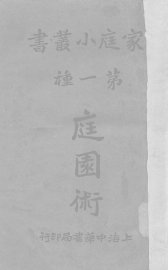 家庭小叢書
第一種
庭園術
上海中華書局印行